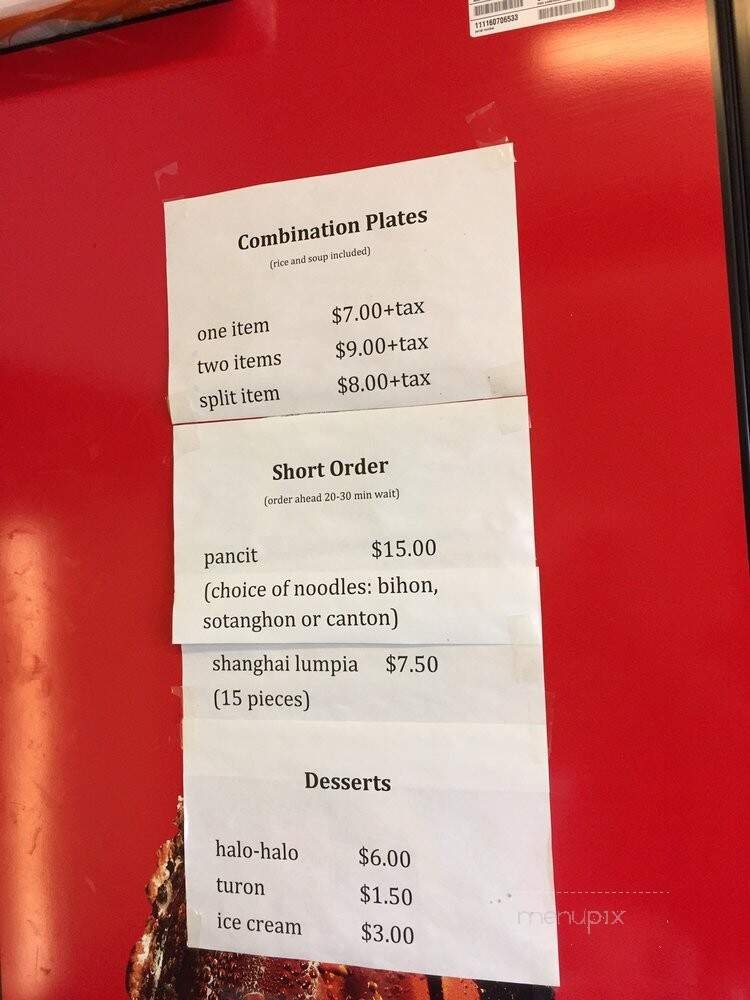 111160706533
Combination Plates
(rice and soup included)
one item $7.00+tax
two items $9.00+tax
split item $8.00+tax
Short Order
(order ahead 20-30 min wait)
pancit $15.00
(choice of noodles: bihon,
sotanghon or canton)
shanghai lumpia $7.50
(15 pieces)
Desserts
halo-halo $6.00
turon $1.50
ice cream $3.00
menupix